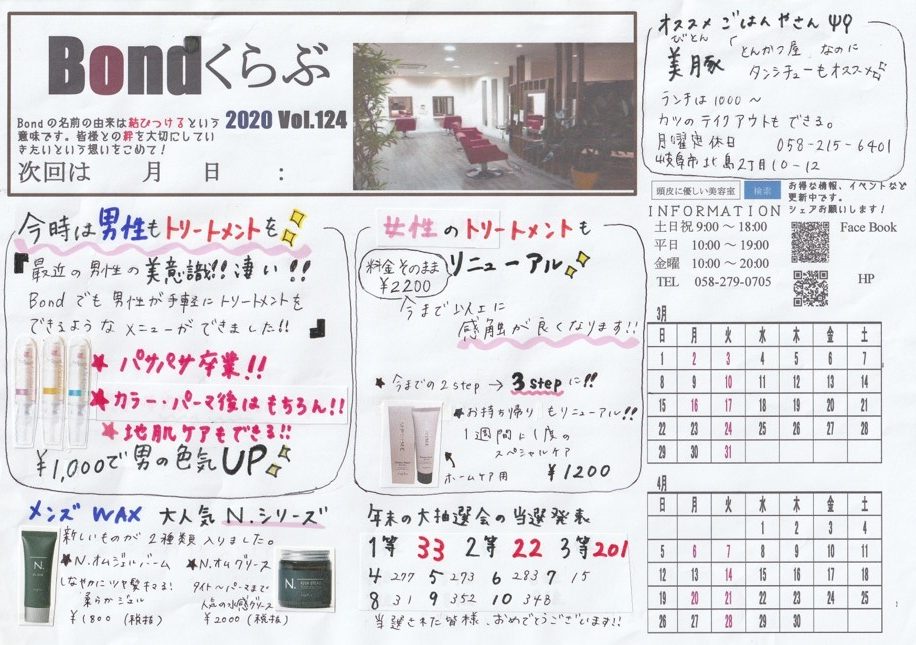 Bondくらぶ
Bondの名前の由来は結びつけるという
意味です。皆様との絆を大切にしてい
きたいという想いをこめて！
2020 Vol.124
次回は　　月　　日　　：
オススメ ごはんやさん
びとん
美豚
「とんかつ屋」なのに
タンシチューもオススメ
ランチは1000～
カツのテイクアウトもできる。
月曜定休日　058-215-6401
岐阜市北島2丁目10-12
頭皮に優しい美容室　検索
お得な情報、イベントなど
更新中です。
シェアお願いします！
INFORMATION
土日祝 9:00～18:00
平日　10:00～19:00
金曜　10:00～20:00
TEL　058-279-0705
Face Book
HP
今時は男性もトリートメントを
『最近の男性の美意識!!凄い!!
Bondでも男性が手軽にトリートメントを
できるようなメニューができました!!』
★パサパサ卒業!!
★カラー・パーマ後はもちろん!!
★地肌ケアもできる!!
¥1,000で男の色気UP
女性のトリートメントも
料金そのまま
¥2200
リニューアル
今まで以上に
感触が良くなります!!
★今までの2step→3stepに!!
★お持ち帰りもリニューアル!!
1週間に1度の
スペシャルケア
ホームケア用
¥1200
メンズWAX 大人気 N.シリーズ
新しいものが2種類入りました。
★N.オムジェルバーム
しなやかにツヤ髪キマる!
柔らかジェル
¥1800（税抜）
★N.オムグリース
タイト～パーマまで
人気の水感グリース
¥2000（税抜）
N.
年末の大抽選会の当選発表
1等 33　2等 22　3等 201
4 277　5 273　6 283　7 15
8 31　9 352　10 348
当選された皆様、おめでとうございます!!
3月
日 月 火 水 木 金 土
1 2 3 4 5 6 7
8 9 10 11 12 13 14
15 16 17 18 19 20 21
22 23 24 25 26 27 28
29 30 31
4月
日 月 火 水 木 金 土
1 2 3 4
5 6 7 8 9 10 11
12 13 14 15 16 17 18
19 20 21 22 23 24 25
26 27 28 29 30